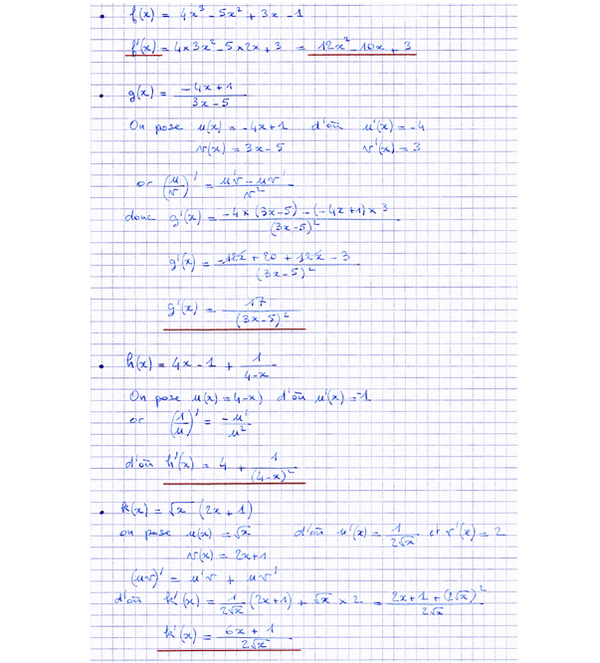 • f(x) = 4x³ - 5x² + 3x - 1
f'(x) = 4×3x² - 5×2x + 3 = 12x² - 10x + 3
• g(x) = (-4x+1)/(3x-5)
On pose u(x) = -4x+1 d'où u'(x) = -4
v(x) = 3x-5 v'(x) = 3
or (u/v)' = (u'v - uv')/v²
donc g'(x) = (-4×(3x-5) - (-4x+1)×3)/(3x-5)²
g'(x) = (-12x + 20 + 12x - 3)/(3x-5)²
g'(x) = 17/(3x-5)²
• h(x) = 4x - 1 + 1/(4-x)
On pose u(x) = 4-x) d'où u'(x) = -1
or (1/u)' = -u'/u²
d'où h'(x) = 4 + 1/(4-x)²
• k(x) = √x (2x+1)
on pose u(x) = √x d'où u'(x) = 1/(2√x) et v'(x) = 2
v(x) = 2x+1
(uv)' = u'v + uv'
d'où k'(x) = 1/(2√x) (2x+1) + √x × 2 = (2x+1+(2√x)²)/(2√x)
k'(x) = (6x+1)/(2√x)